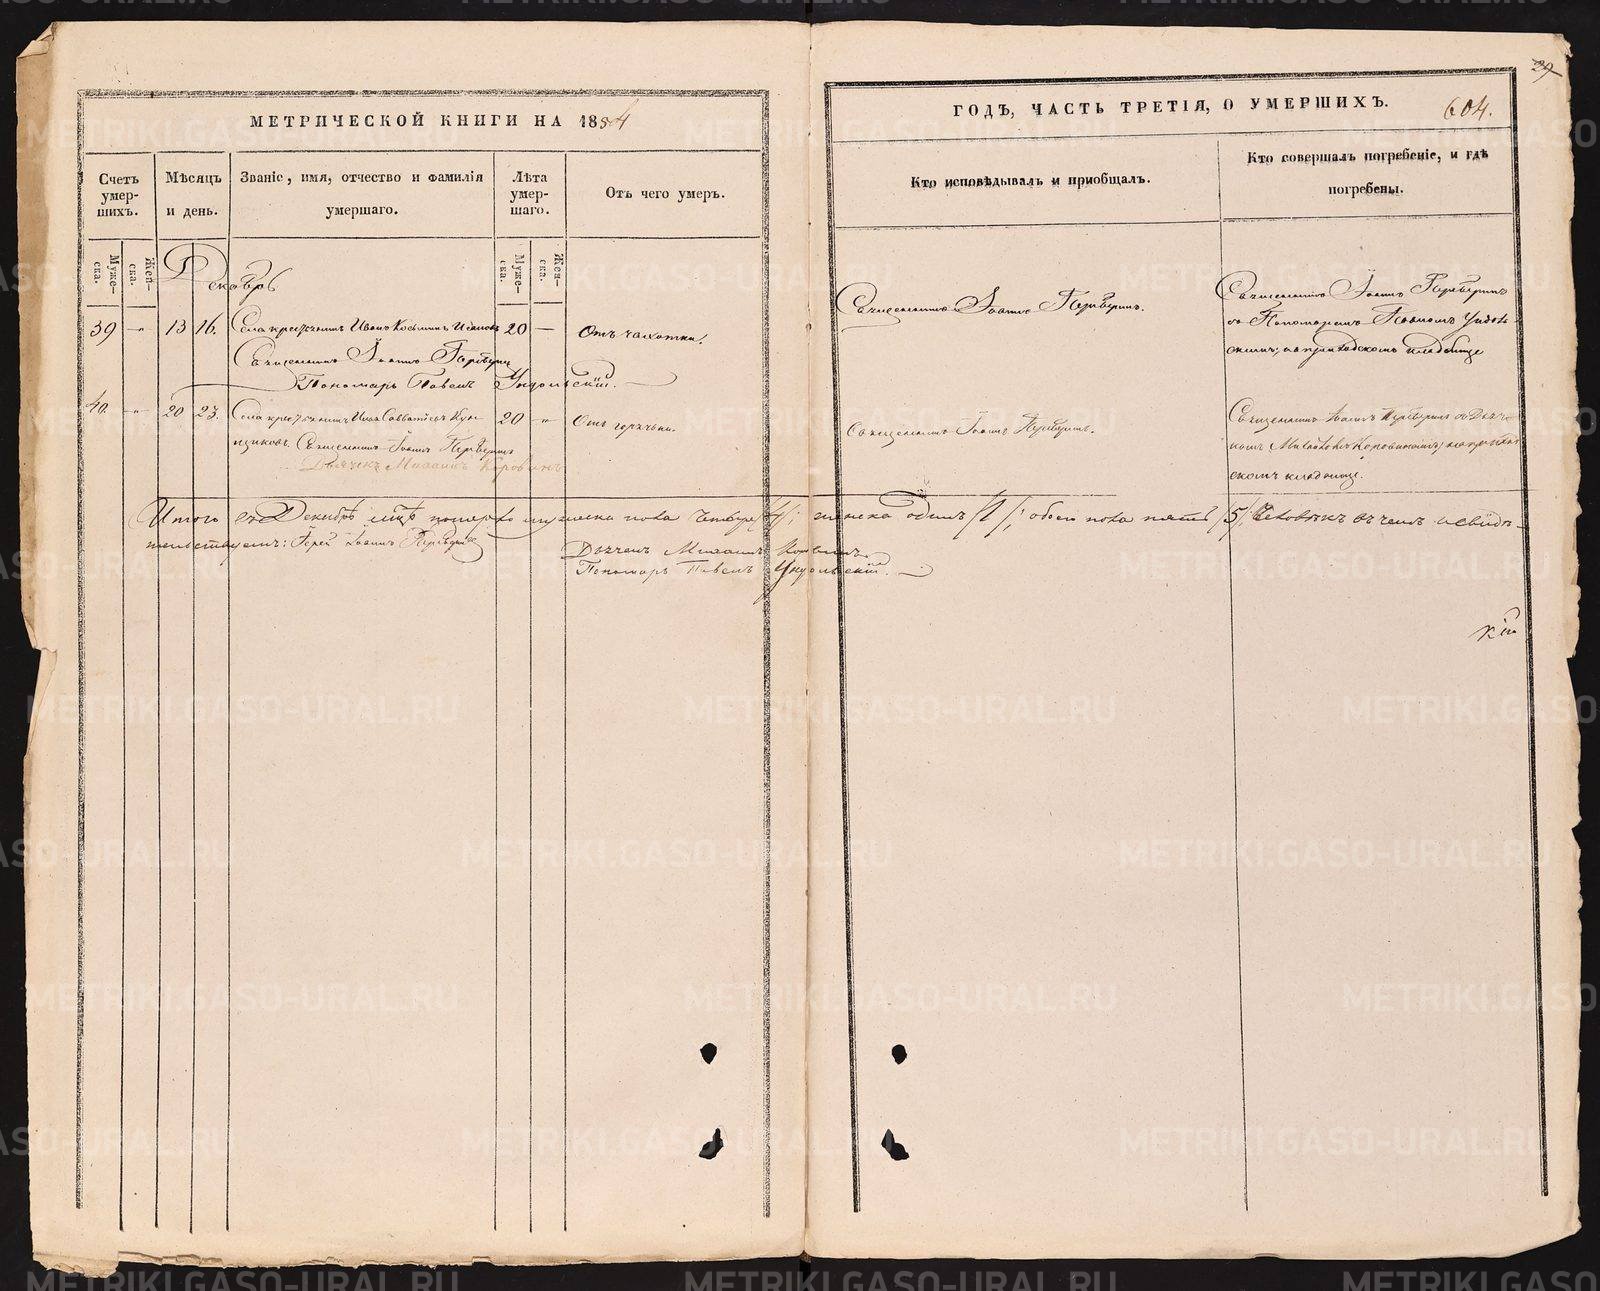 МЕТРИЧЕСКОЙ КНИГИ НА 1854
ГОДЪ, ЧАСТЬ ТРЕТІЯ, О УМЕРШИХЪ.
604.
29
Счетъ умер- шихъ.
Мѣсяцъ и день.
Званіе, имя, отчество и фамилія умершаго.
Лѣта умер- шаго.
Отъ чего умеръ.
Кто исповѣдывалъ и пріобщалъ.
Кто совершалъ погребеніе, и гдѣ погребены.
Муже- ска.
Жен- ска.
Муже- ска.
Жен- ска.
Декабрь
39 - 13 16. Села крестьянинъ Иванъ Косьминъ 20 — Отъ чахотки.
Священникъ Іоаннъ
Пономарь Павелъ Ундольскій.
Священникъ Іоаннъ
Священникъ Іоаннъ
съ Пономаремъ Павломъ Ундоль-
скимъ; на приходскомъ кладбище
40. - 20 23. Села крестьянинъ 20 - Отъ горячки.
Священникъ Іоаннъ
Дьячекъ Михаилъ Коровинъ
Священникъ Іоаннъ
Священникъ Іоаннъ съ Дьяч-
комъ Михаиломъ Коровинымъ; на приход-
скомъ кладбище.
Итого въ Декабрѣ мцѣ померло мужеска пола четыре /4/; женска одинъ /1/; обоего пола пять /5/ человѣкъ въ чемъ и свидѣ-
тельствуемъ: Іерей Іоаннъ
Дьячекъ Михаилъ Коровинъ
Пономарь Павелъ Ундольскій.
METRIKI.GASO-URAL.RU